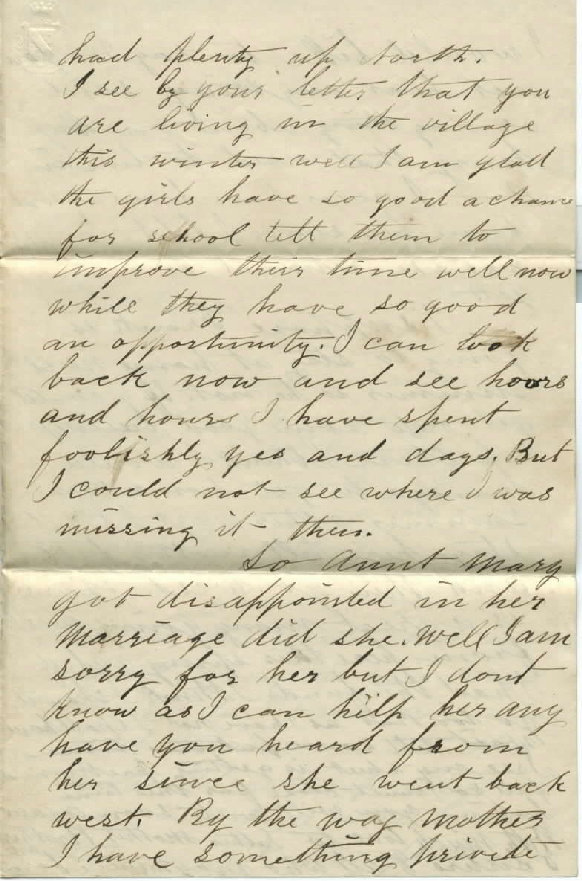 had plenty up north.
I see by your letter that you
are living in the village
this winter well I am glad
the girls have so good a chance
for school tell them to
improve their time well now
while they have so good
an opportunity. I can look
back now and see hours
and hours I have spent
foolishly yes and days. But
I could not see where I was
missing it then.
So Aunt Mary
got disappointed in her
marriage did she. Well I am
sorry for her but I dont
know as I can help her any
have you heard from
her since she went back
west. By the way Mother
I have something private